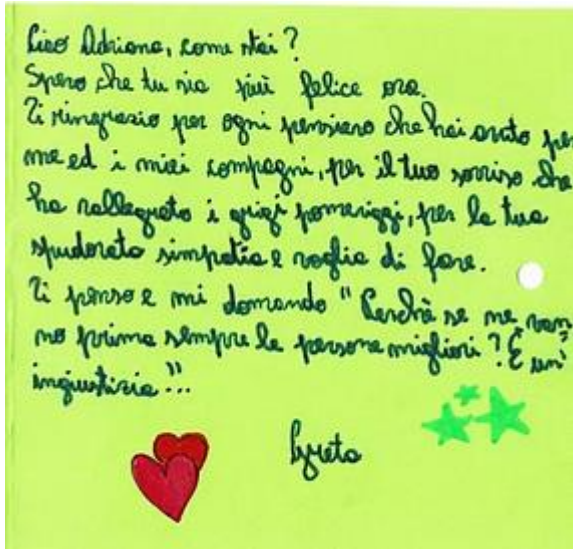 Ciao Adriana, come stai?
Spero che tu sia più felice ora.
Ti ringrazio per ogni pensiero che hai avuto per
me ed i miei compagni, per il tuo sorriso che
ha rallegrato i grigi pomeriggi, per la tua
spudorata simpatia e voglia di fare.
Ti penso e mi domando "Perchè se ne van
no prima sempre le persone migliori? È un'
ingiustizia"...
Greta